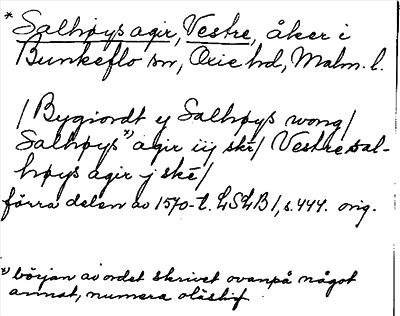 * Salhøys agir, Vestre, åker i
Bunkeflo sn, Oxie hd, Malm. l.
/ Bygiordt y Salhøys wong/
Salhøys x) agir iij skè/ Vestre sal-
høys agir j skè/
förra delen av 1570-t. LSLB 1, s. 444. orig.
x) början av ordet skrivet ovanpå något
annat, numera oläsligt